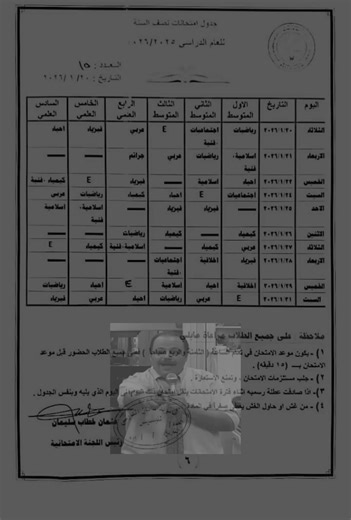 جدول امتحانات نصف السنة
للعام الدراسي ٢٠٢٦/٢٠٢٥
العدد : ١٥
التاريخ : ٢٠٢٦/١/٢٠
اليوم التاريخ الاول المتوسط الثاني المتوسط الثالث المتوسط الرابع العلمي الخامس العلمي السادس العلمي
الثلاثاء ٢٠٢٦/١/٢٠ رياضيات اجتماعيات -فنية E عربي فيزياء احياء
الاربعاء ٢٠٢٦/١/٢١ اسلامية- فنية رياضيات عربي جرائم —— ——
الخميس ٢٠٢٦/١/٢٢ احياء اسلامية —— فيزياء E كيمياء -فنية
السبت ٢٠٢٦/١/٢٤ اجتماعيات E احياء كيمياء رياضيات عربي
الاحد ٢٠٢٦/١/٢٥ —— فيزياء فيزياء —— اسلامية- فنية اسلامية
الاثنين ٢٠٢٦/١/٢٦ كيمياء —— كيمياء رياضيات —— ——
الثلاثاء ٢٠٢٦/١/٢٧ عربي كيمياء —— اسلامية-فنية كيمياء E
الاربعاء ٢٠٢٦/١/٢٨ فيزياء اخلاقية اجتماعيات -فنية —— —— ——
الخميس ٢٠٢٦/١/٢٩ اخلاقية احياء اسلامية E احياء رياضيات
السبت ٢٠٢٦/١/٣١ E عربي رياضيات احياء عربي فيزياء
ملاحظة على جميع الطلاب مراعاة مايلي
١) يكون موعد الامتحان في تمام الساعة الثامنة والربع صباحا ، فعلى جميع الطلاب الحضور قبل موعد
الامتحان بـ (١٥ دقيقة) .
٢) جلب مستلزمات الامتحان ، وتمنع الاستعارة .
٣) اذا صادفت عطلة رسمية اثناء فترة الامتحانات اليوم الذي يليه وبنفس الجدول .
٤) من غش او حاول الغش يعتبر صفرا في
عثمان خطاب سليمان
رئيس اللجنة الامتحانية
٦